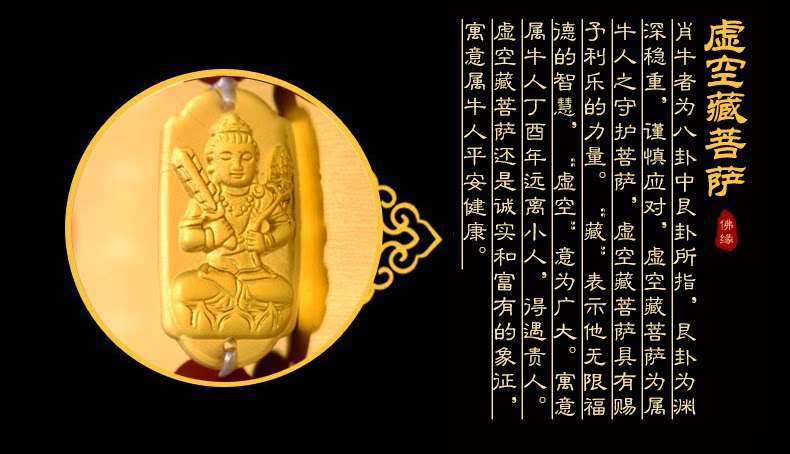 虚空藏菩萨
佛缘
肖牛者为八卦中艮卦所指，艮卦为渊
深稳重，谨慎应对，虚空藏菩萨为属
牛人之守护菩萨，虚空藏菩萨具有赐
予利乐的力量。“藏”表示他无限福
德的智慧，“虚空”意为广大。寓意
属牛人丁酉年远离小人，得遇贵人。
虚空藏菩萨还是诚实和富有的象征，
寓意属牛人平安健康。